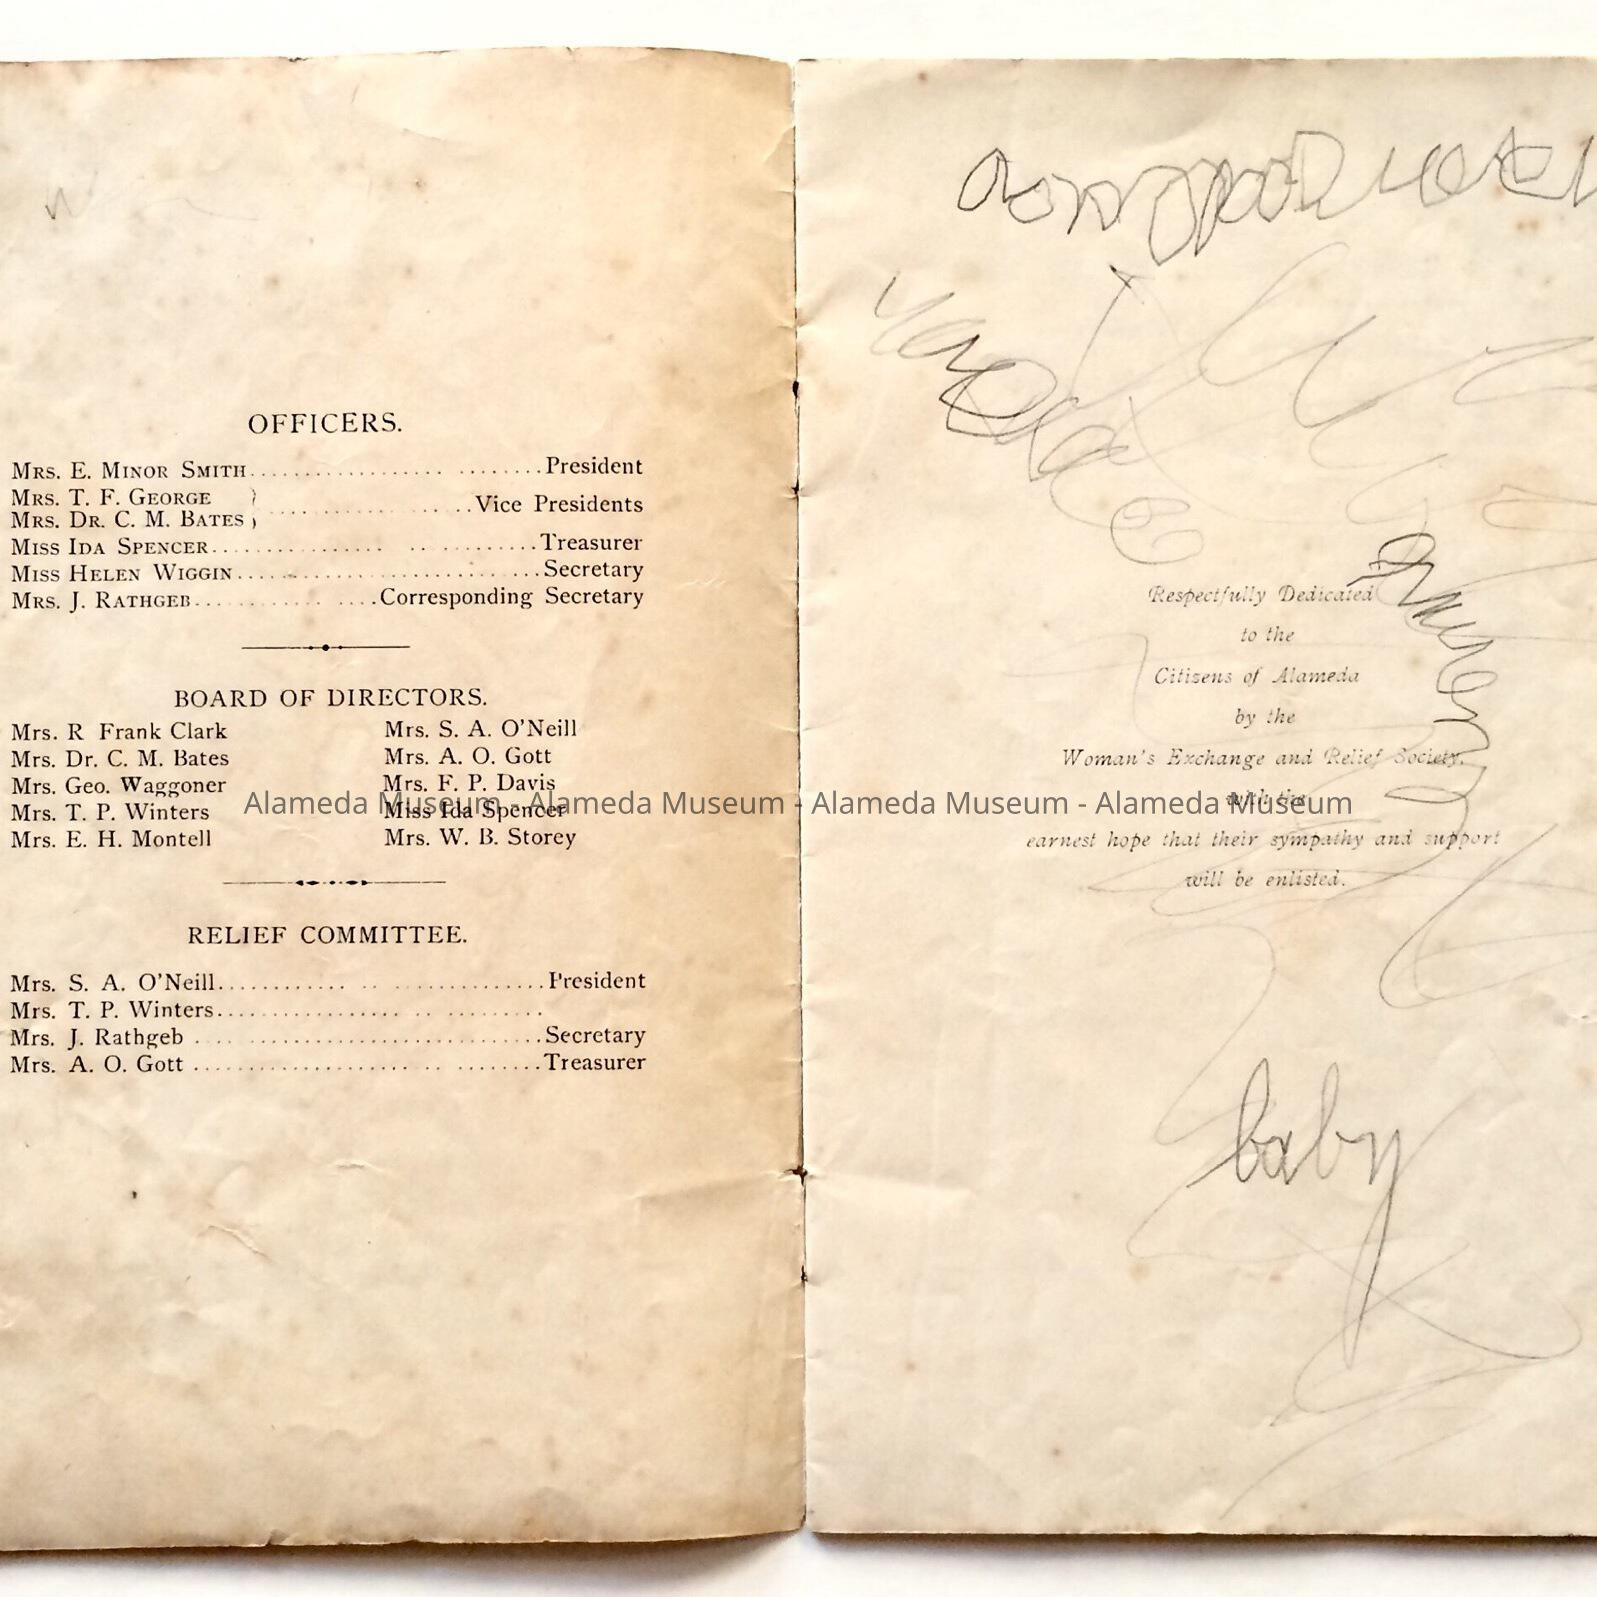 OFFICERS.
MRS. E. MINOR SMITH.................. ........President
MRS. T. F. GEORGE
MRS. DR. C. M. BATES
Vice Presidents
MISS IDA SPENCER................ .. ..........Treasurer
MISS HELEN WIGGIN............................Secretary
MRS. J. RATHGEB............ ....Corresponding Secretary
BOARD OF DIRECTORS.
Mrs. R Frank Clark
Mrs. Dr. C. M. Bates
Mrs. Geo. Waggoner
Mrs. T. P. Winters
Mrs. E. H. Montell
Mrs. S. A. O'Neill
Mrs. A. O. Gott
Mrs. F. P. Davis
Miss Ida Spencer
Mrs. W. B. Storey
RELIEF COMMITTEE.
Mrs. S. A. O'Neill............ .. ..................President
Mrs. T. P. Winters................. .. .........
Mrs. J. Rathgeb .... ............................Secretary
Mrs. A. O. Gott ...................... .. ........Treasurer
Respectfully Dedicated
to the
Citizens of Alameda
by the
Woman's Exchange and Relief Society,
with the
earnest hope that their sympathy and support
will be enlisted.
baby
Alameda Museum - Alameda Museum - Alameda Museum - Alameda Museum